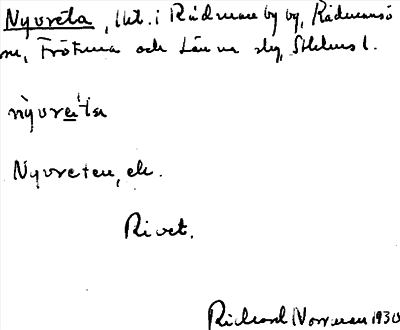 Nyvreta, lht. i Rådmanby by, Rådmansö
sn, Frötuna och Länna slg, Sthlms l.
nỳvre̱ta
Nyvreten, ek.
Rivet.
Richard Norrman 1930